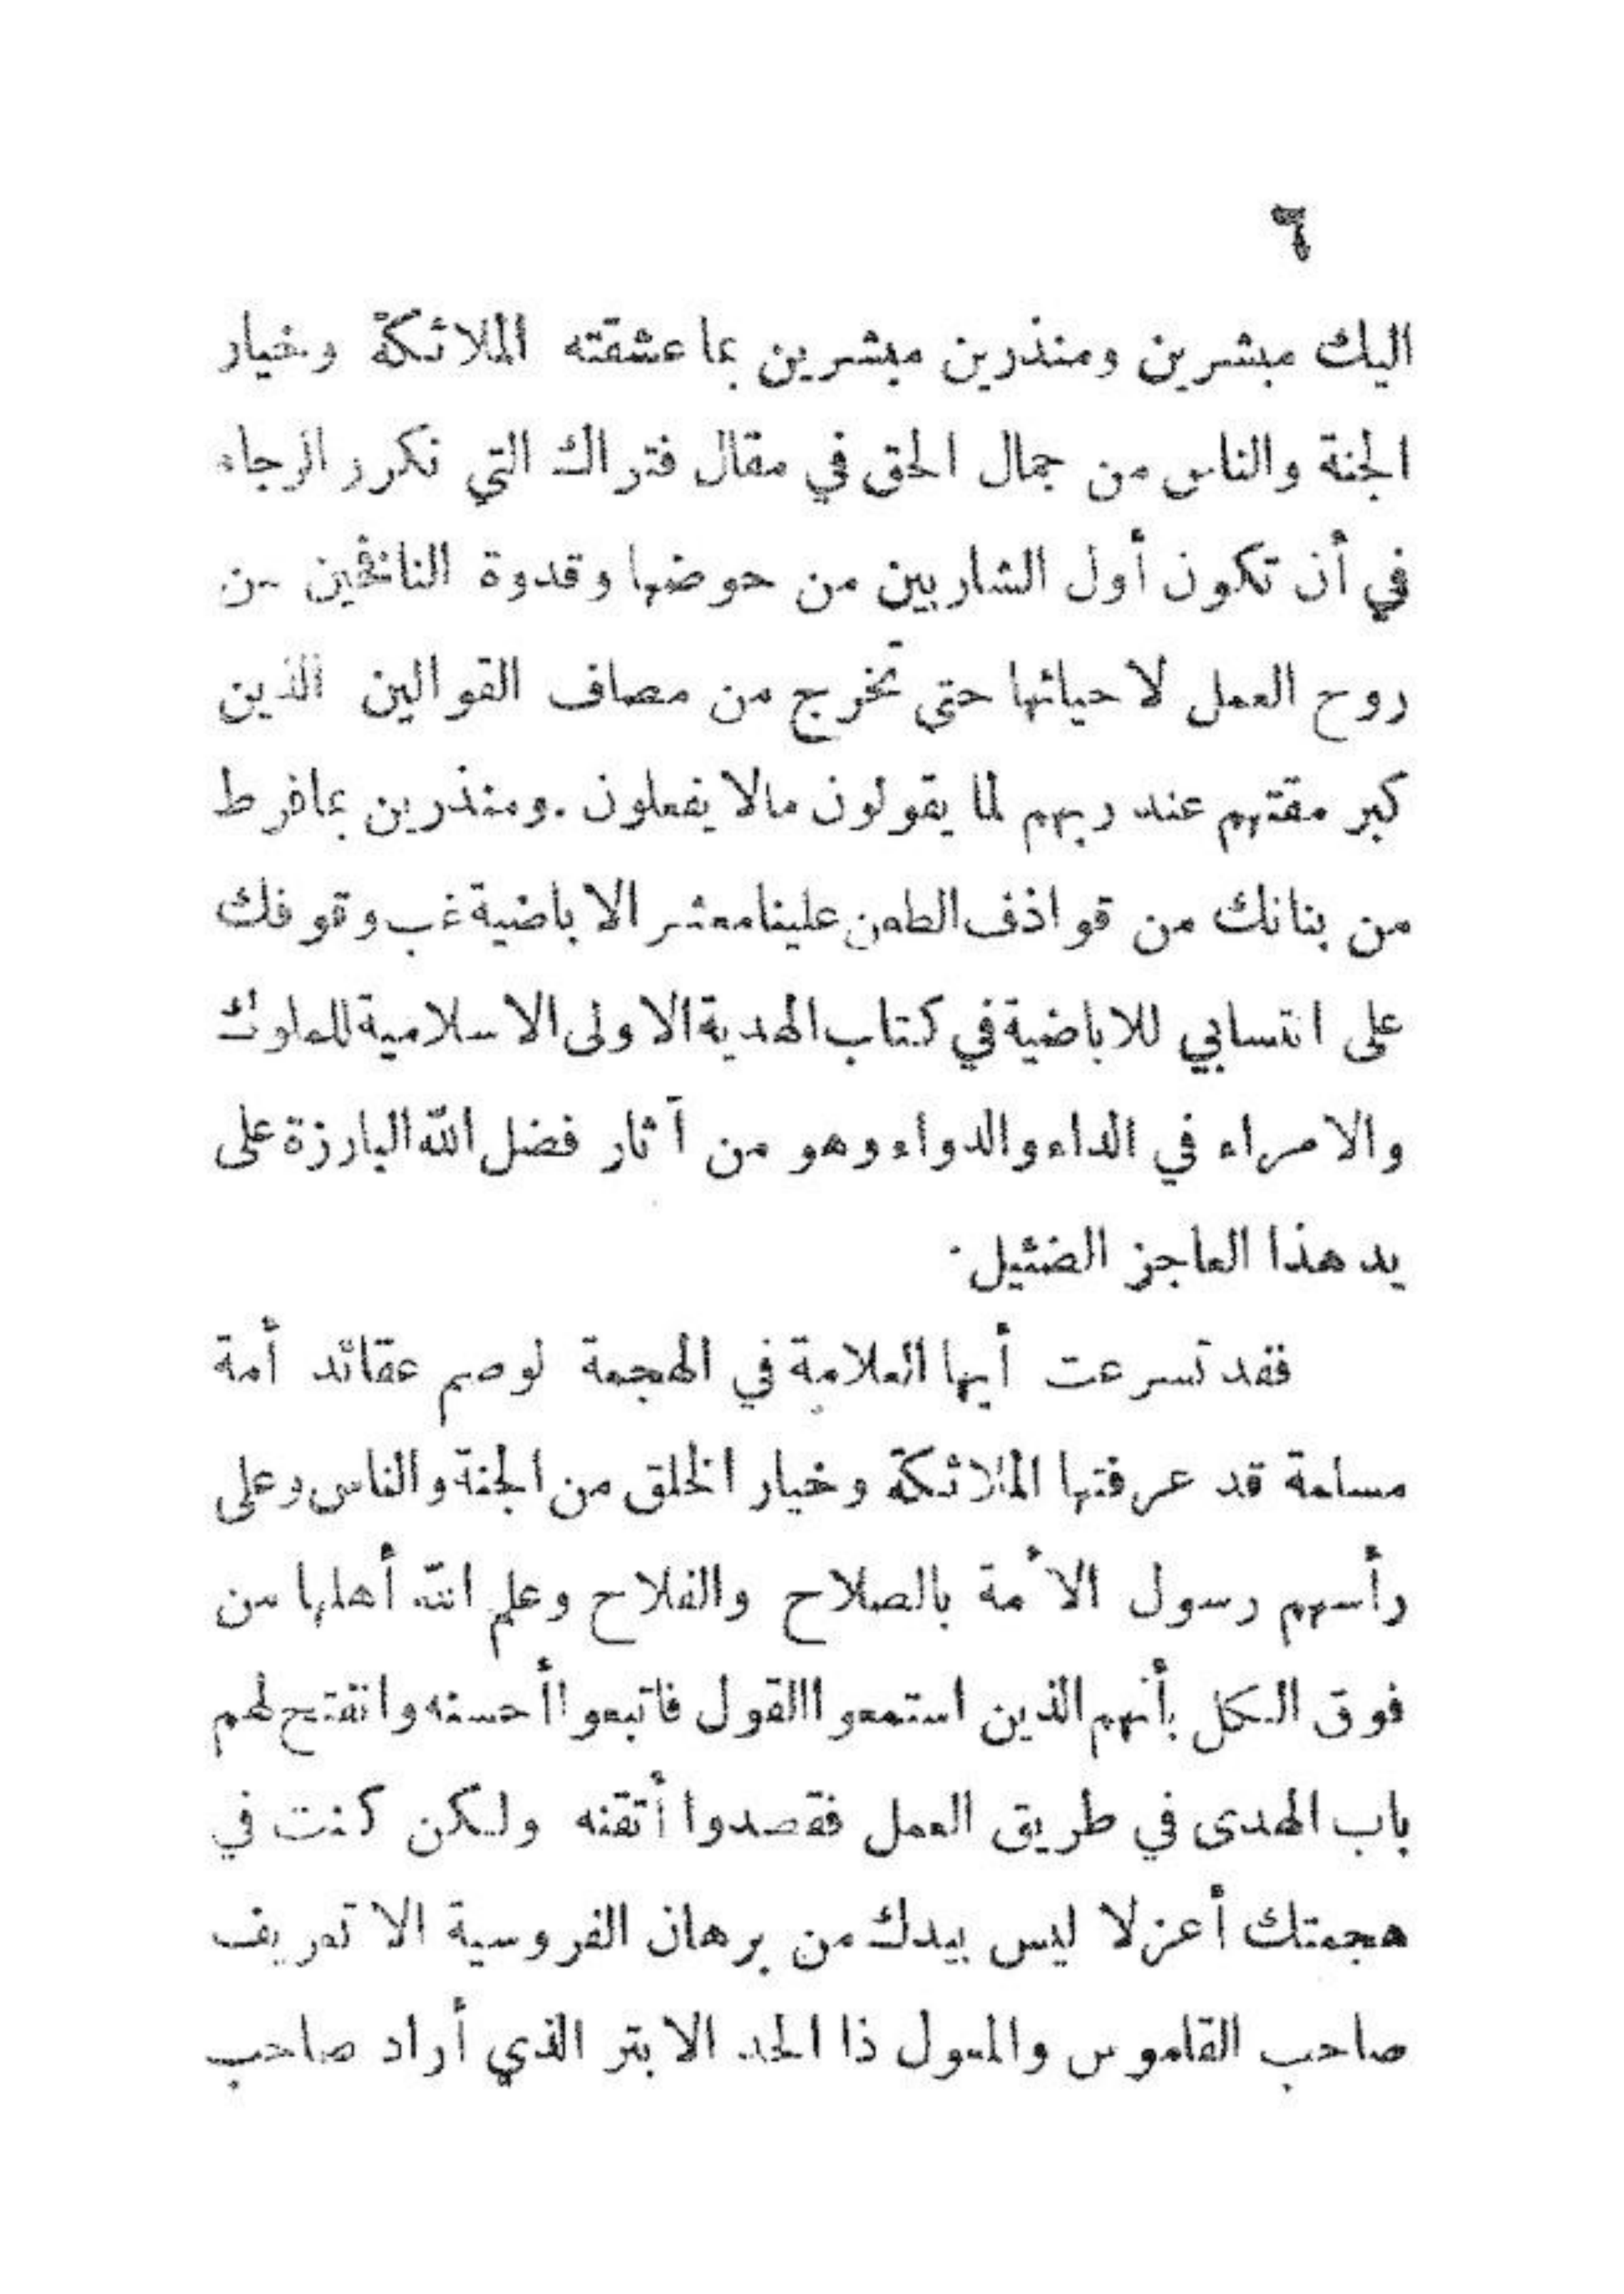 ٦
اليك مبشرين ومنذرين مبشرين بما عشقته الملائكة وخيار
الجنة والناس من جمال الحق في مقال فتراك التي نكرر الرجاء
في أن تكون أول الشاربين من حوضها وقدوة النافخين من
روح العمل لاحيائها حتى تخرج من مصاف القوالين الذين
كبر مقتهم عند ربهم لما يقولون مالا يفعلون . ومنذرين بما فرط
من بنانك من قواذف الطعن علينا معشر الاباضية غب وقوفك
على انتسابي للاباضية في كتاب الهدية الاولى الاسلامية للملوك
والامراء في الداء والدواء وهو من آثار فضل الله البارزة على
يد هذا العاجز الضئيل .
فقد تسرعت أيها العلامة في الهجمة لوصم عقائد أمة
مسلمة قد عرفتها الملائكة وخيار الخلق من الجنة والناس وعلى
رأسهم رسول الأمة بالصلاح والفلاح وعلم الله أهلها من
فوق الكل بأنهم الذين استمعوا القول فاتبعوا أحسنه وانفتح لهم
باب الهدى في طريق العمل فقصدوا أتقنه ولكن كنت في
هجمتك أعزلا ليس بيدك من برهان الفروسية الا تعريف
صاحب القاموس والمعول ذا الحد الابتر الذي أراد صاحب